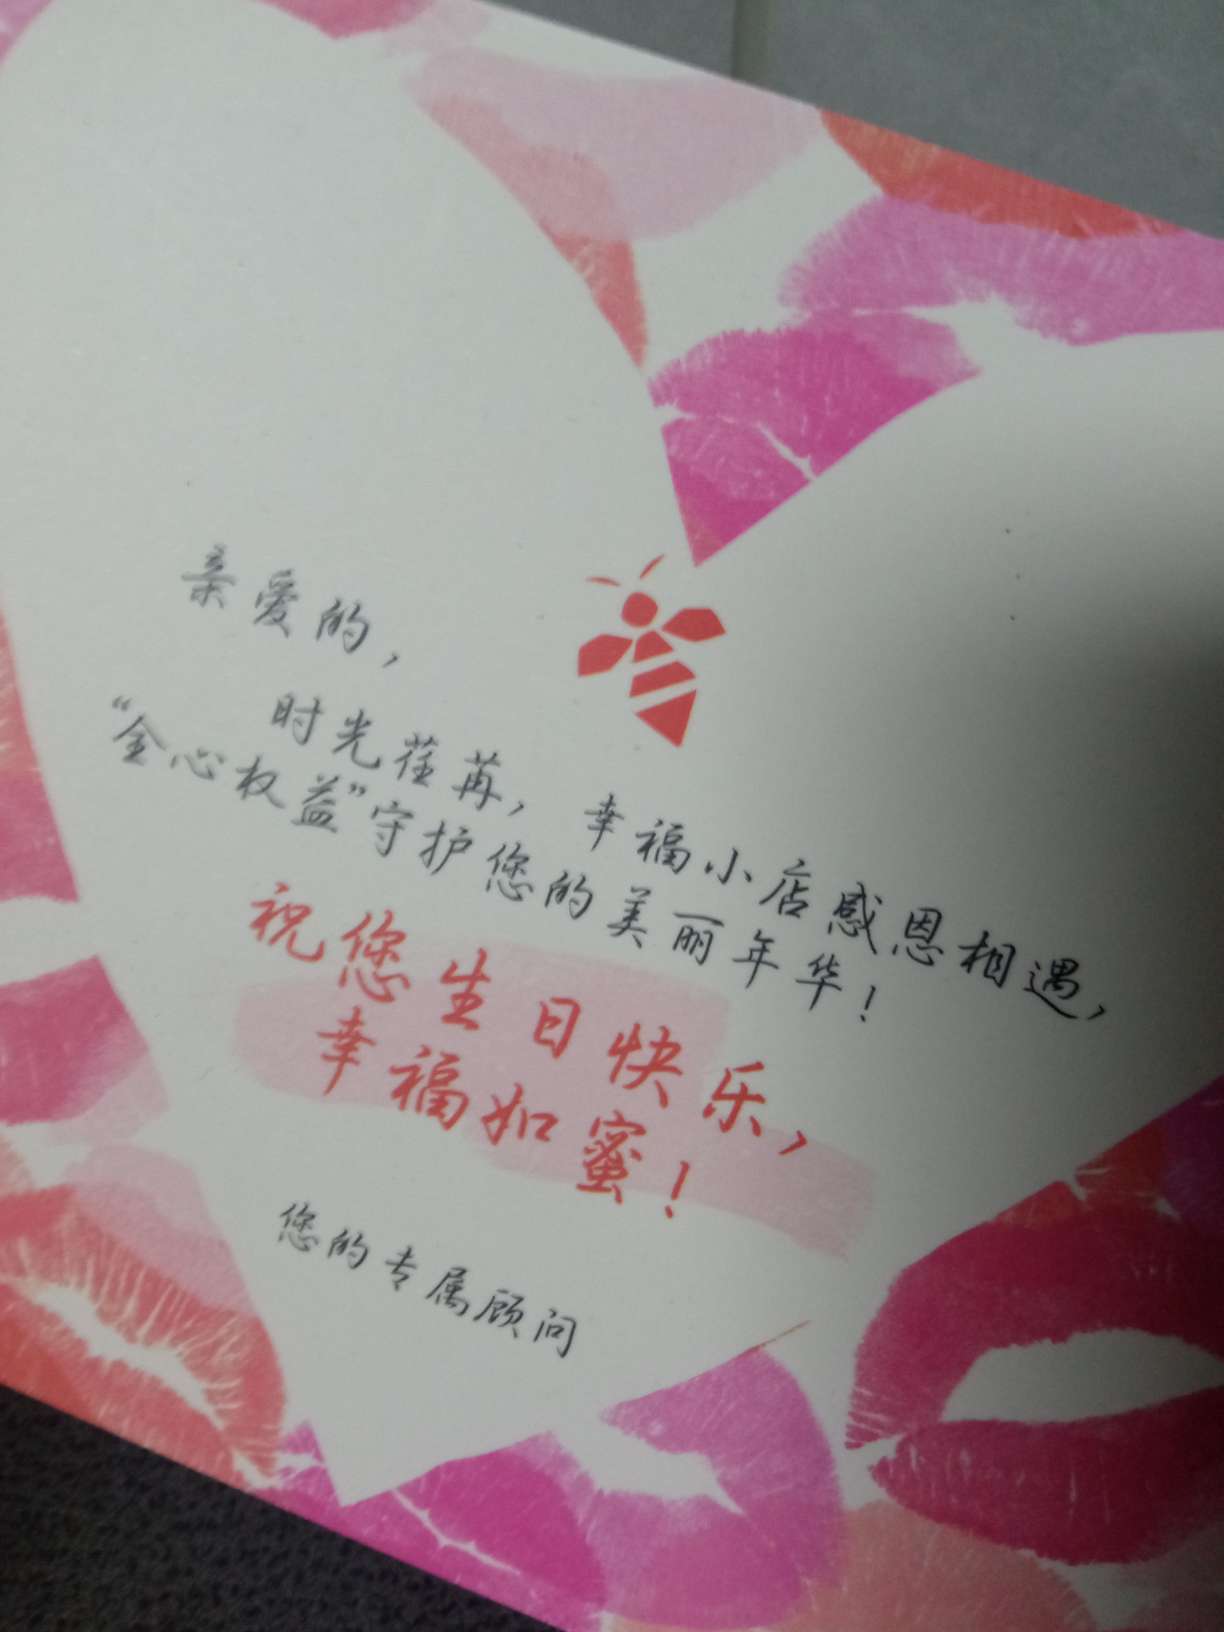 亲爱的，
时光荏苒，幸福小店感恩相遇，
“全心权益”守护您的美丽年华！
祝您生日快乐，
幸福如蜜！
您的专属顾问